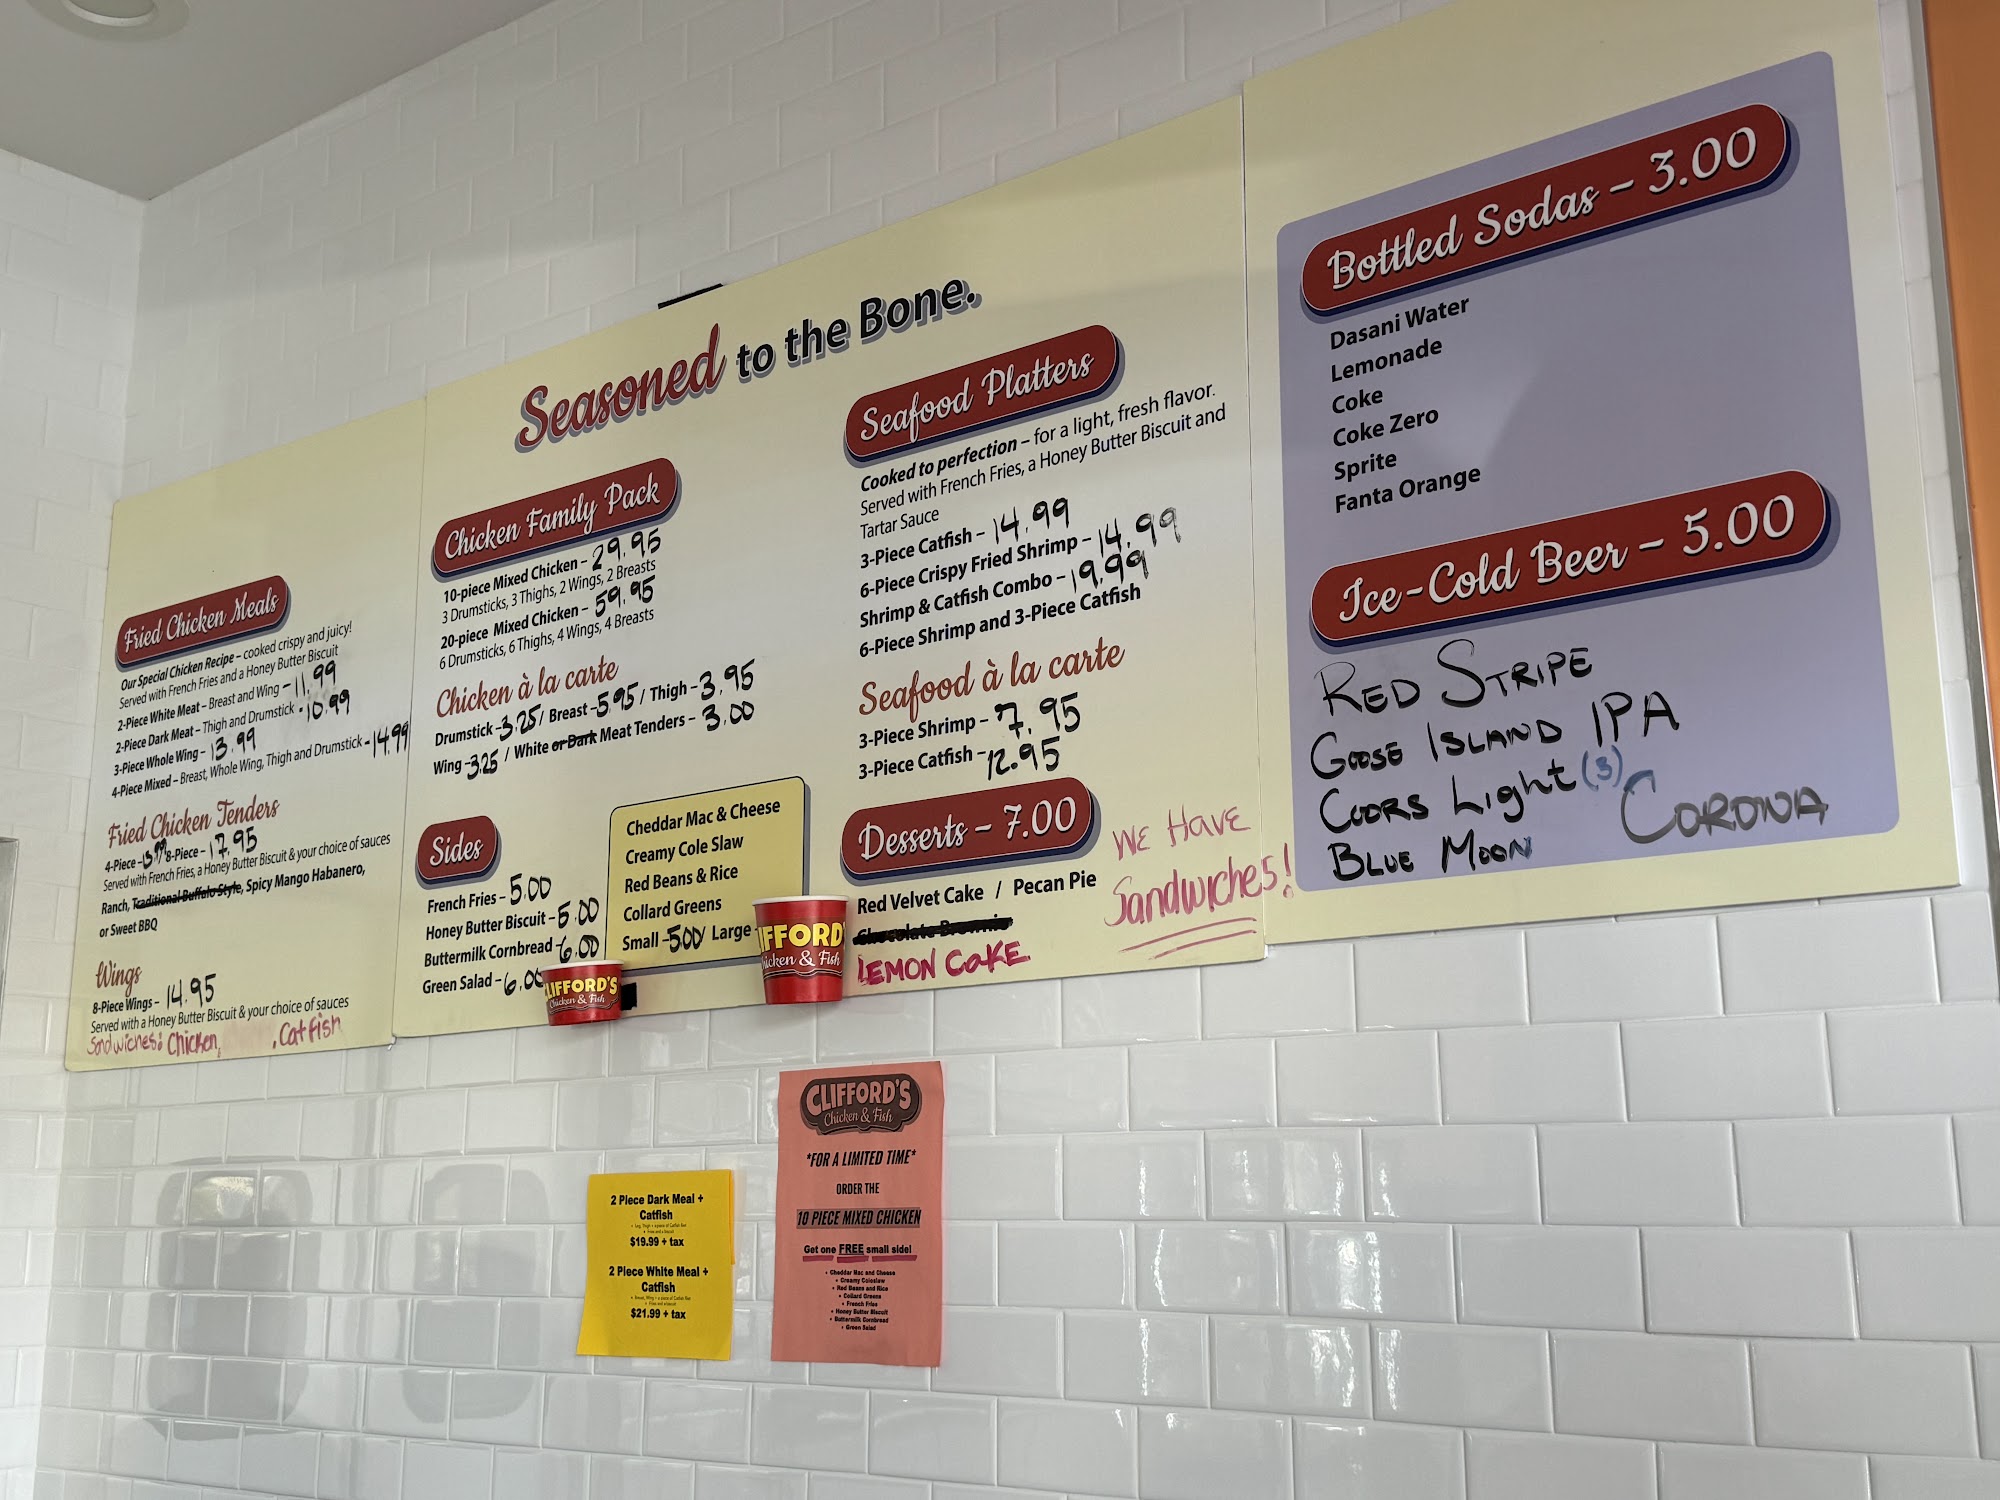 Fried Chicken Meals
Our Special Chicken Recipe – cooked crispy and juicy!
Served with French Fries and a Honey Butter Biscuit
2-Piece White Meat – Breast and Wing – 11.99
2-Piece Dark Meat – Thigh and Drumstick - 10.99
3-Piece Whole Wing – 13.99
4-Piece Mixed – Breast, Whole Wing, Thigh and Drumstick – 14.99
Fried Chicken Tenders
4-Piece – 13.99 8-Piece – 17.95
Served with French Fries, a Honey Butter Biscuit & your choice of sauces
Ranch, Traditional Buffalo Style, Spicy Mango Habanero,
or Sweet BBQ
Wings
8-Piece Wings – 14.95
Served with a Honey Butter Biscuit & your choice of sauces
Sandwiches: Chicken, , Catfish
Seasoned to the Bone.
Chicken Family Pack
10-piece Mixed Chicken – 29.95
3 Drumsticks, 3 Thighs, 2 Wings, 2 Breasts
20-piece Mixed Chicken – 59.95
6 Drumsticks, 6 Thighs, 4 Wings, 4 Breasts
Chicken à la carte
Drumstick – 3.25 / Breast – 5.95 / Thigh – 3.95
Wing – 3.25 / White or Dark Meat Tenders – 3.00
Sides
French Fries – 5.00
Honey Butter Biscuit – 5.00
Buttermilk Cornbread – 6.00
Green Salad – 6.00
Cheddar Mac & Cheese
Creamy Cole Slaw
Red Beans & Rice
Collard Greens
Small – 5.00 / Large –
CLIFFORD'S
Chicken & Fish
IFFORD'
icken & Fish
Seafood Platters
Cooked to perfection – for a light, fresh flavor.
Served with French Fries, a Honey Butter Biscuit and
Tartar Sauce
3-Piece Catfish – 14.99
6-Piece Crispy Fried Shrimp – 14.99
Shrimp & Catfish Combo – 19.99
6-Piece Shrimp and 3-Piece Catfish
Seafood à la carte
3-Piece Shrimp – 7.95
3-Piece Catfish – 12.95
Desserts – 7.00
Red Velvet Cake / Pecan Pie
Chocolate Brownie
LEMON CAKE
WE HAVE
Sandwiches!
Bottled Sodas – 3.00
Dasani Water
Lemonade
Coke
Coke Zero
Sprite
Fanta Orange
Ice-Cold Beer – 5.00
RED STRIPE
GOOSE ISLAND IPA
COORS Light (3)
CORONA
BLUE MOON
2 Piece Dark Meal +
Catfish
• Leg, Thigh + a piece of Catfish filet
• Fries and a biscuit
$19.99 + tax
2 Piece White Meal +
Catfish
• Breast, Wing + a piece of Catfish filet
• Fries and a biscuit
$21.99 + tax
CLIFFORD'S
Chicken & Fish
*FOR A LIMITED TIME*
ORDER THE
10 PIECE MIXED CHICKEN
Get one FREE small side!
• Cheddar Mac and Cheese
• Creamy Coleslaw
• Red Beans and Rice
• Collard Greens
• French Fries
• Honey Butter Biscuit
• Buttermilk Cornbread
• Green Salad